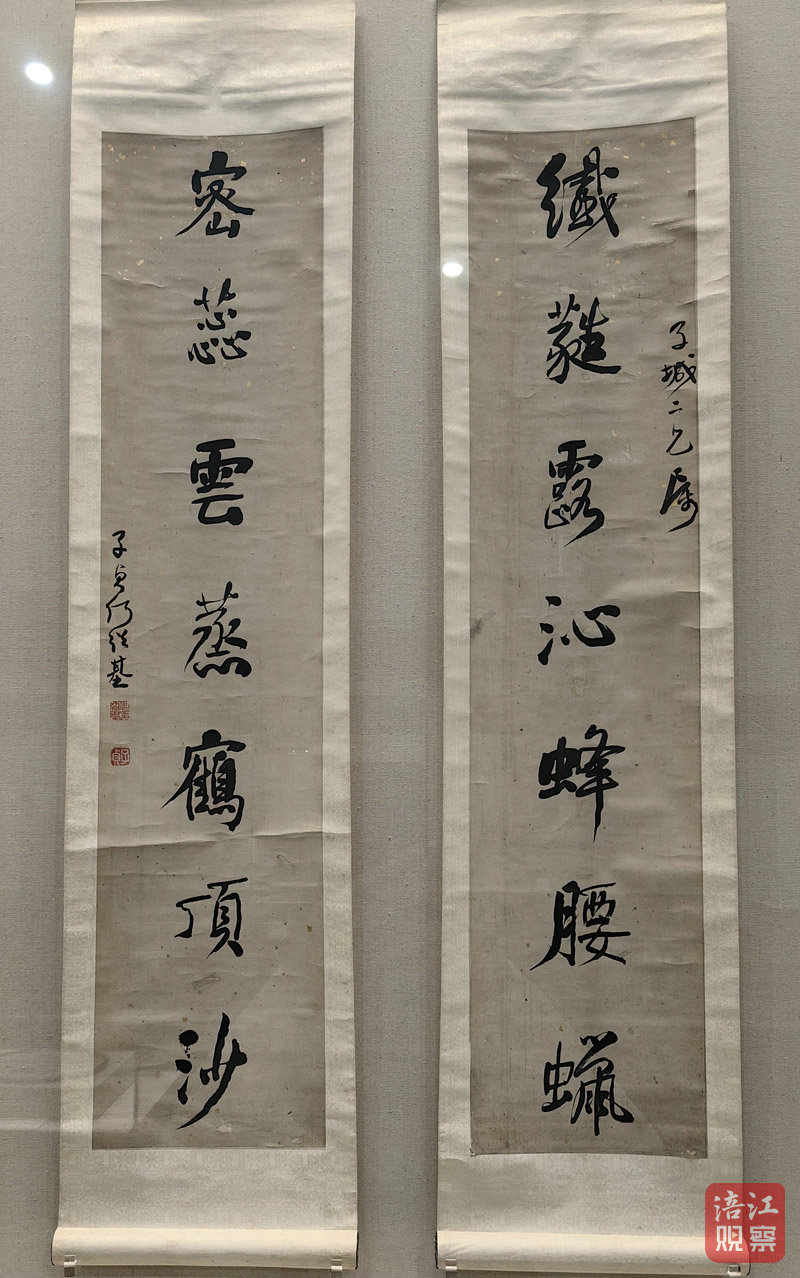 纖蕤露沁蜂腰蠟
子城二兄属
密蕊雲蒸鶴頂沙
子貞何紹基
子貞
涪江观察